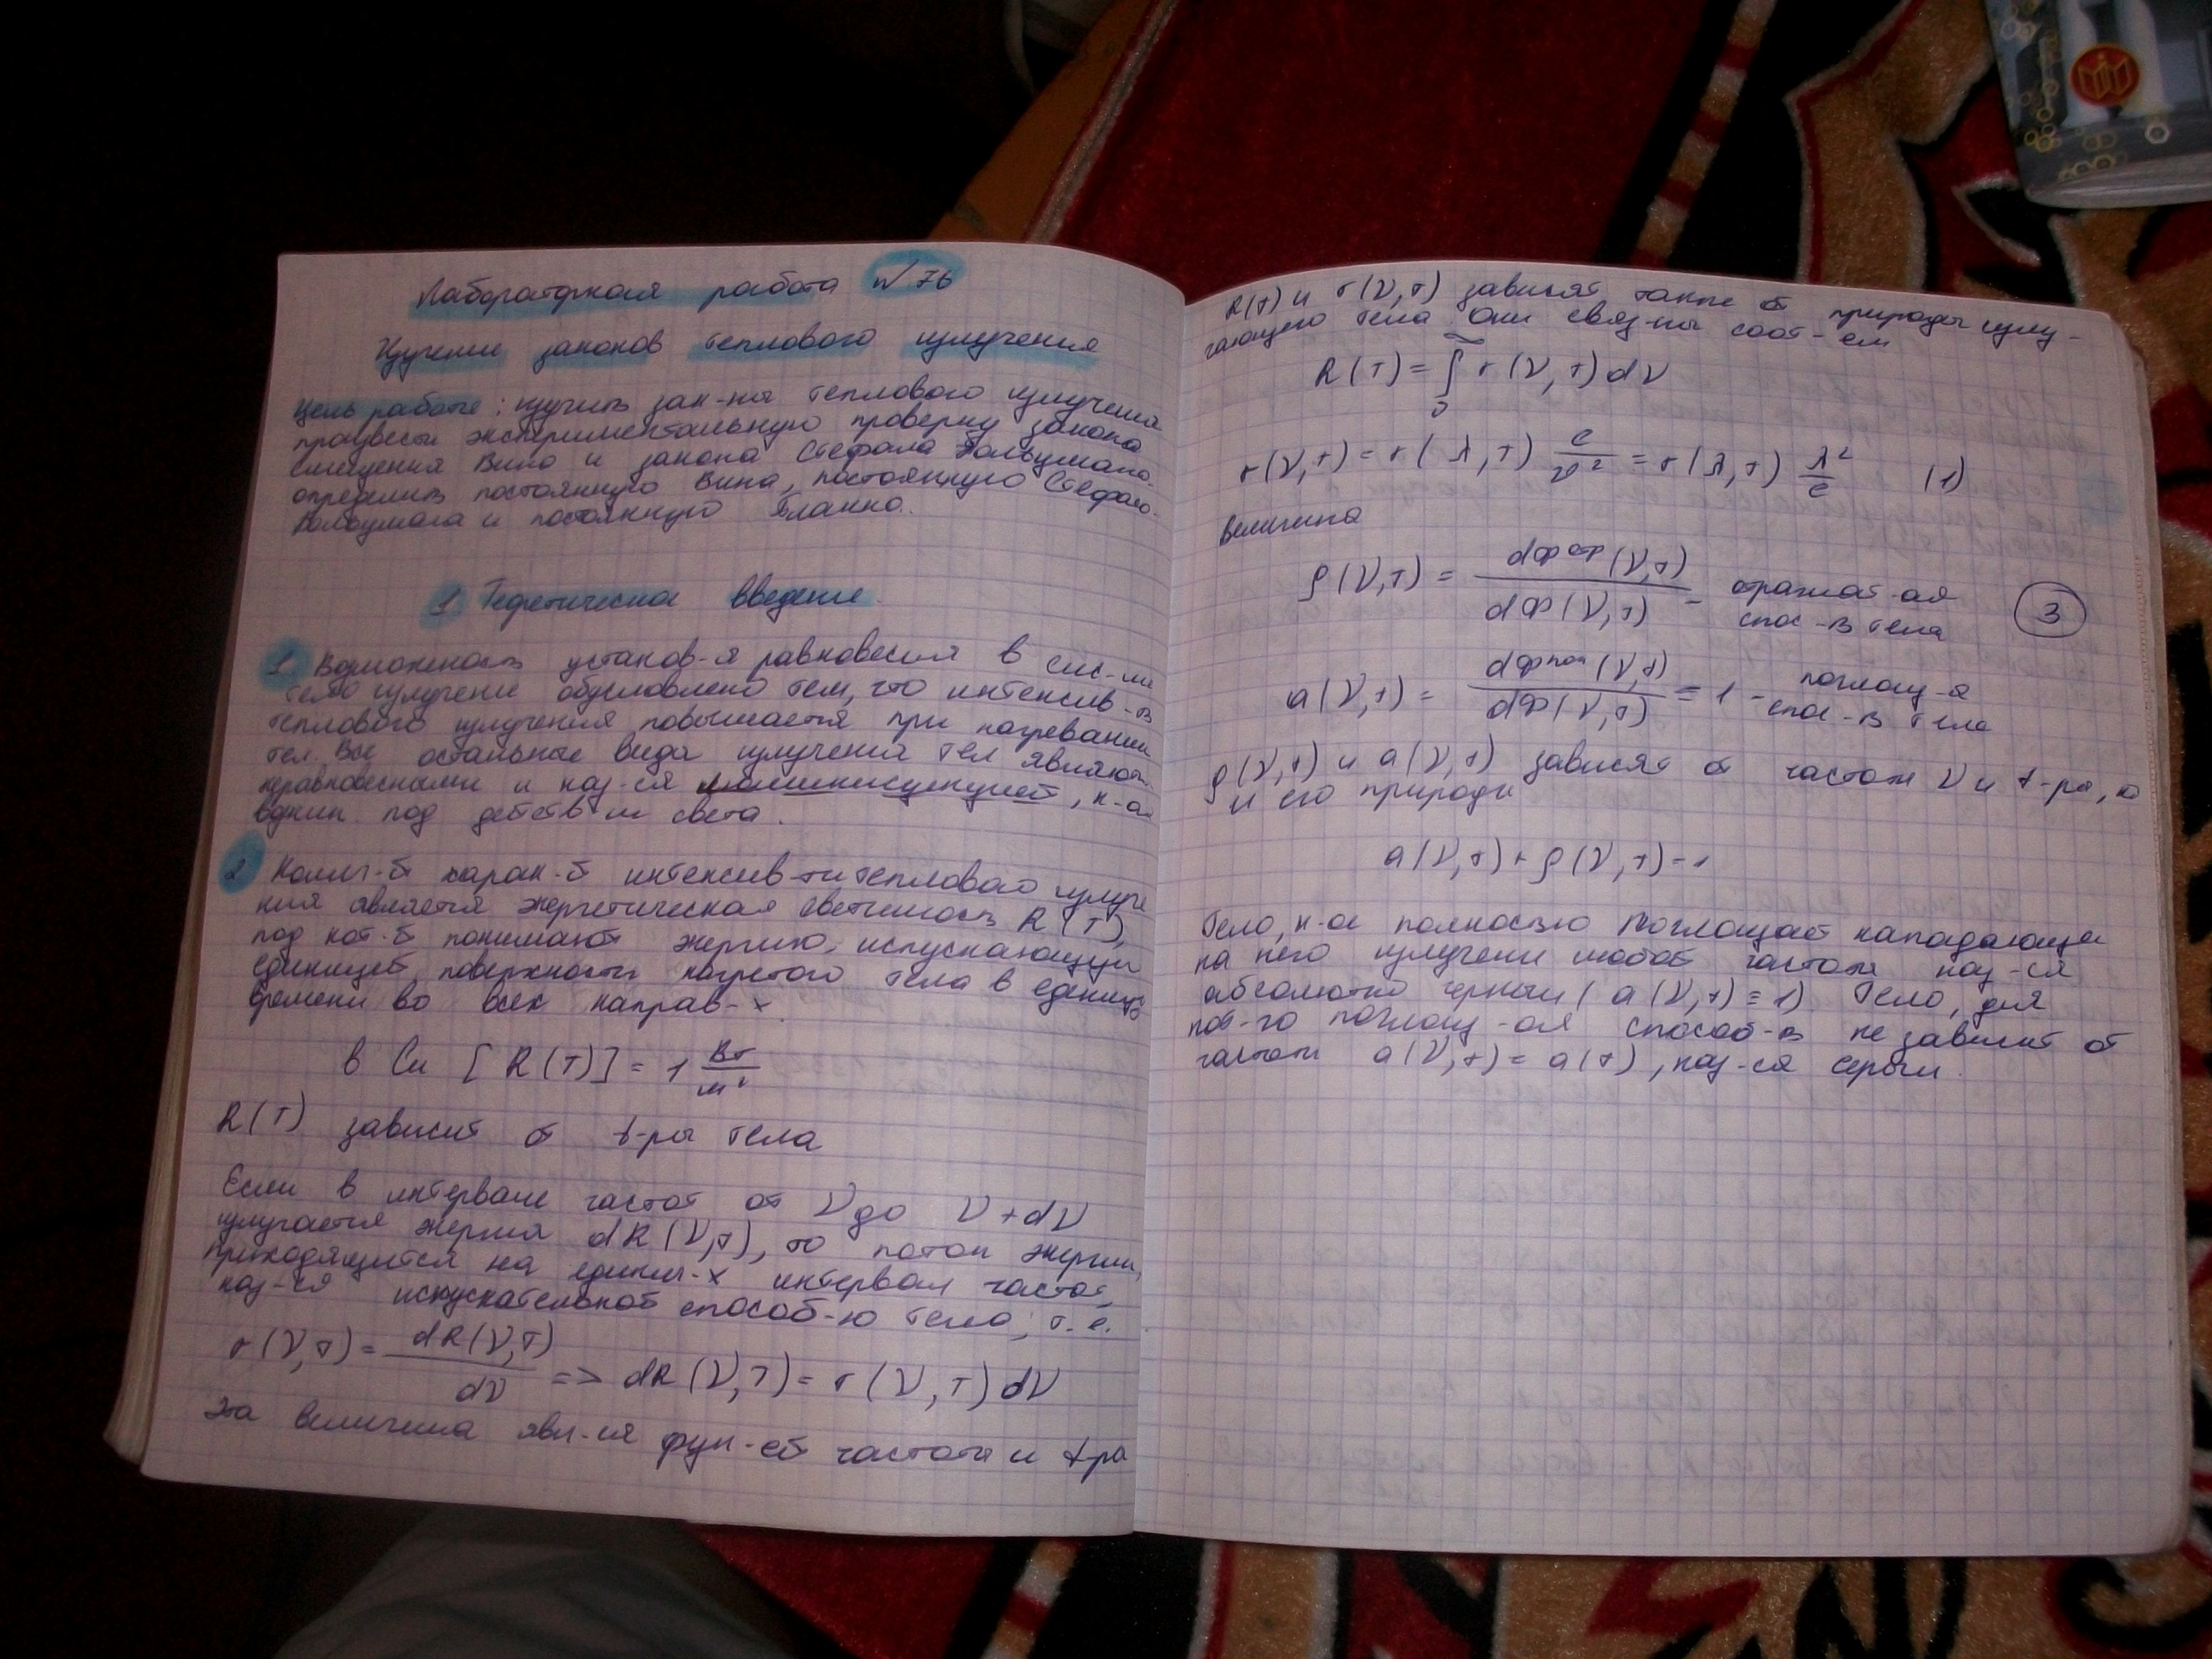 Лабораторная работа №76
Изучение законов теплового излучения
Цель работы: изучить зак-ны теплового излучения
произвести экспериментальную проверку закона
смещения Вина и закона Стефана Больцмана.
определить постоянную Вина, постоянную Стефана-
Больцмана и постоянную Планка.
1 Теоретическое введение.
1 Возможность установ-я равновесия в сис-ме
тело излучение обусловлено тем, что интенсив-ть
теплового излучения повышается при нагревании
тел. Все остальные вида излучения тел являют.
неравновесными и наз-ся люминисценцией, к-ая
под действ-м света.
2 Колич-й харак-й интенсив-ти теплового излуче
ния является энергетическая светимость R(T),
под кот-й понимают энергию, испускающую
единицей поверхности нагретого тела в единицу
времени во всех направ-х.
в Си [R(T)] = 1 Вт/м²
R(T) зависит от t-ры тела
Если в интервале частот от ν до ν+dν
излучается энергия dR(ν,T), то поток энергии,
приходящийся на единич-х интервал частот,
наз-ся испускательной способ-ю тела, т.е.
r(ν,T) = dR(ν,T)/dν => dR(ν,T) = r(ν,T)dν
Эта величина явл-ся фун-ей частоты и t-ры
R(T) и r(ν,T) зависят также от природы излу-
чающего тела. Они связ-ны соот-ем
R(T) = ∫₀^∞ r(ν,T)dν
r(ν,T) = r(λ,T) c/ν² = r(λ,T) λ²/c (1)
Величина
ρ(ν,T) = dФ^отр(ν,T)/dФ(ν,T) - отражат-ая
спос-ть тела
3
a(ν,T) = dФ^пог(ν,T)/dФ(ν,T) = 1 - поглощ-я
спос-ть тела
ρ(ν,T) и a(ν,T) зависят от частоты ν и t-ры,
и его природы
a(ν,T) + ρ(ν,T) = 1
Тело, к-ое полностью поглощает нападающее
на него излучение любой частоты наз-ся
абсолютно черным (a(ν,T) ≡ 1) Тело, для
кот-го поглощ-ая способ-ть не зависит от
частоты a(ν,T) = a(T), наз-ся серым.